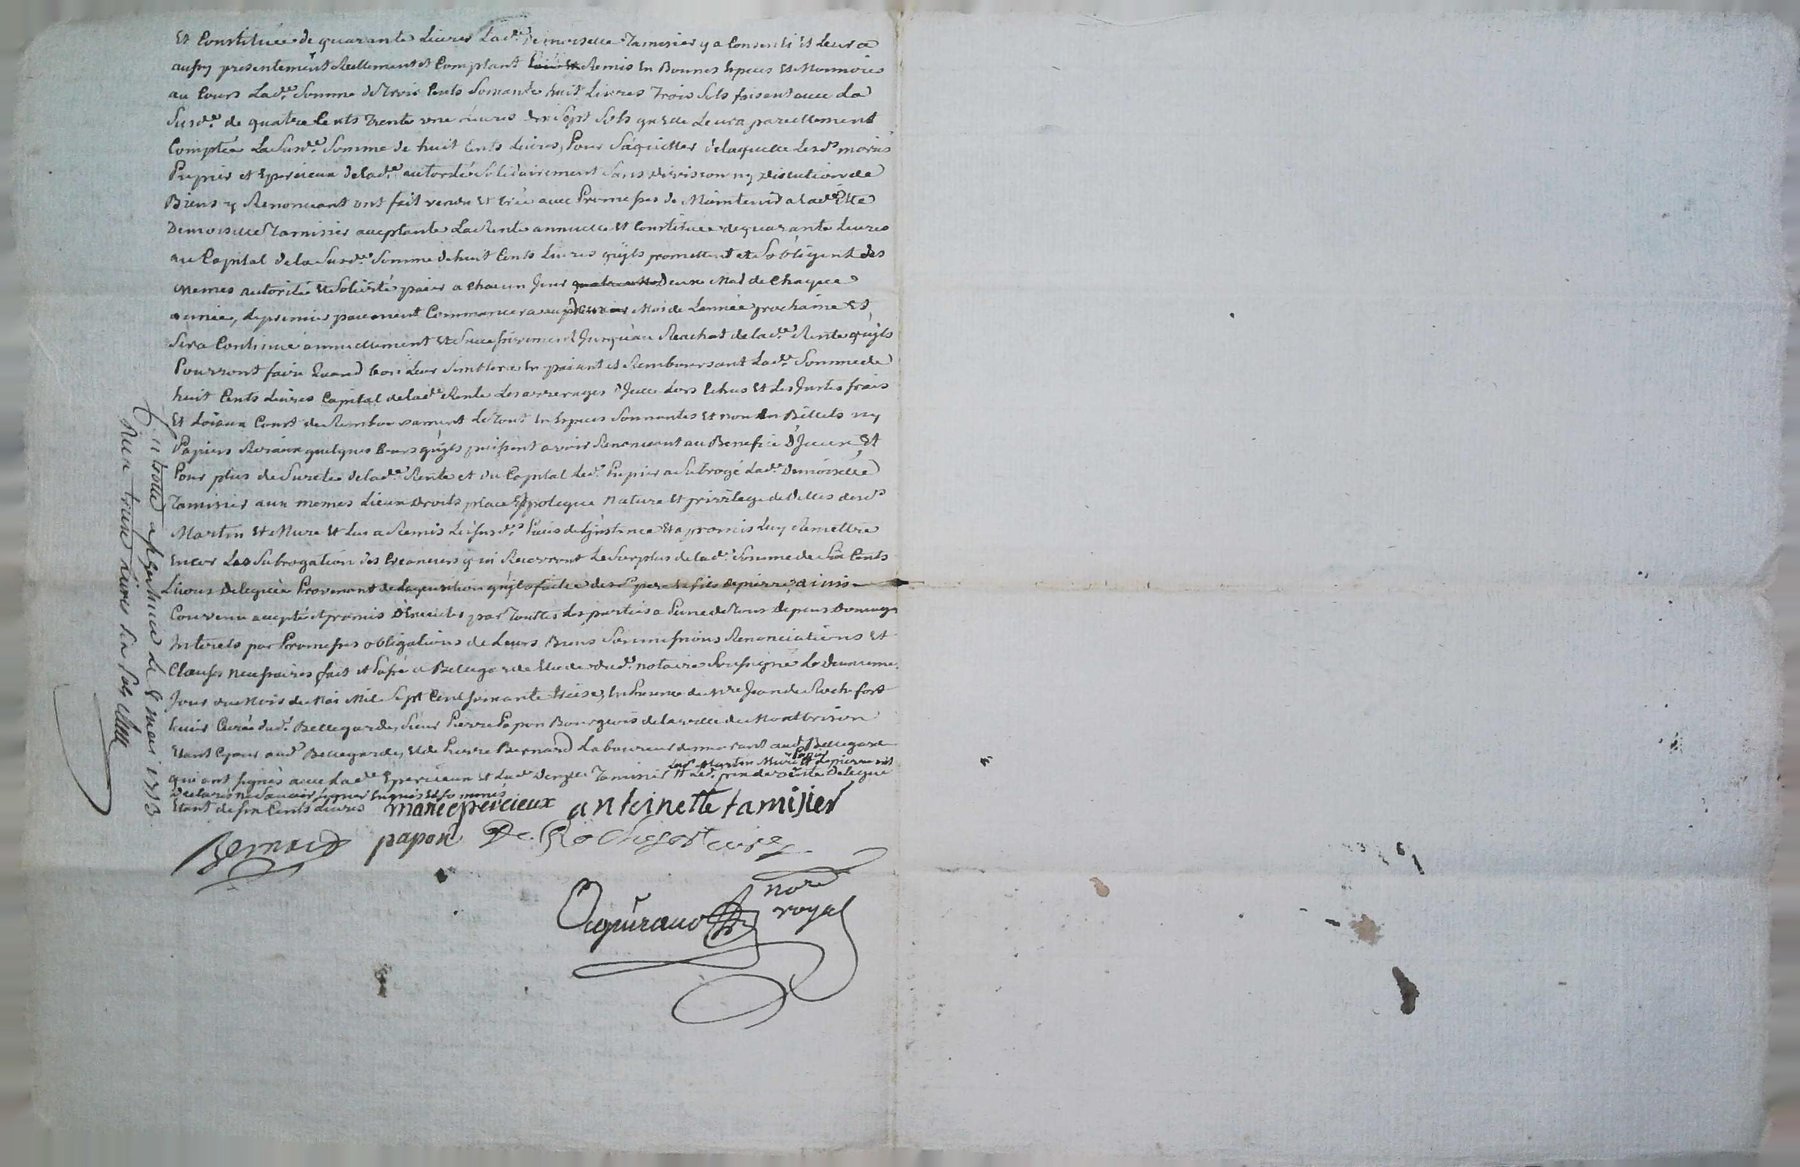 Et Constituée de quarante Livres Lad.e Demoiselle Tamisier y a Consenti Et Leur a
aussy presentement Reellement et Comptant Remis En Bonnes Especes Et Monnoies
au Cours Lad.e Somme de Trois Cents Soixante huit Livres Trois Sols faisant avec La
Susd.e de quatre Cents Trente une Livres dix Sept Sols quelle Leur a pareillement
Comptée La Susd.e Somme de huit Cents Livres, Pour Saquitter delaquelle Lesd.s mariés
Pupier et Epercieux de lad.e autorité Solidairement Sans Division ny Discution de
Biens y Renonceant ont fait vente Et Créé avec Promesses de Maintenir a lad.e
Demoiselle Tamisier acceptante La Rente annuelle Et Constituée de quarante Livres
au Capital de la Susd.e Somme de huit Cents Livres quils promettent et Sobligent des
Memes autorité Et Solidité paier a Chacun Jour Deux Mai de Chaque
année, Le premier paiement Commencera au Deux Mai de Lannée prochaine Et
Sera Continué annuellement Et Successivement Jusqu'au Rachat de lad.e Rente quils
Pourront faire quand bon Leur Semblera En paiant et Remboursant Lad.e Somme de
huit Cents Livres Capital de lad.e Rente Les arrerages Lors Echus Et Les Justes frais
Et Loiaux Cout de Remboursement Le Tout En Especes Sonnantes Et non En Billets ny
Papiers Roiaux quelques Cours quils puissent avoir Renonceant au Benefice D'Iceux, Et
Pour plus de Sureté de lad.e Rente et du Capital Led. Pupier a Subrogé Lad.e Demoiselle
Tamisier aux memes Lieux Droits place hypoteque Nature Et privilege de Celles desd.s
Martin Et Mure Et Lui a Remis Lesusd.s Pieces de Linstance Et a promis Luy Remettre
Encor Les Subrogation des Creanciers qui Recevront Le Surplus de lad.e Somme de Six Cents
Livres Deleguée Provenant de Laquisition quils faite des pere Et fils Depierre, ainsi
Convenu accepté et promis Executer par Toutes Les parties a Peine de Tous Depens Domages
Interets par Promesses obligations de Leurs Biens Soumissions Renonciations Et
Clauses necessaires fait et Passé a Bellegarde Etude dud. notaire Soussigné Le Deuxieme
Jour du Mois de Mai Mil Sept Cent Soixante treise, En Presence de M.re Jean de Rochefort
Curé dud. Bellegarde, Sieur Pierre Papon Bourgeois de la ville de Montbrison
Etant Ce Jour aud. Bellegarde, Et de Pierre Bernard Laboureur demeurant aud. Bellegarde
qui ont Signés avec Lad.e Epercieux et Lad.e Demoiselle Tamisier Led. Martin Mure Et Depierre ont
Declarés ne Savoir Signer Enquis Et Sommés Et Led. prix de vente Delegué
Etant de Six Cents Livres
marie epercieux antoinette tamisier
Bernard papon De Rochefort curé
nore
royal
Controllé a Le 8 mai 1773.
Reçu treize Livres Six Sols